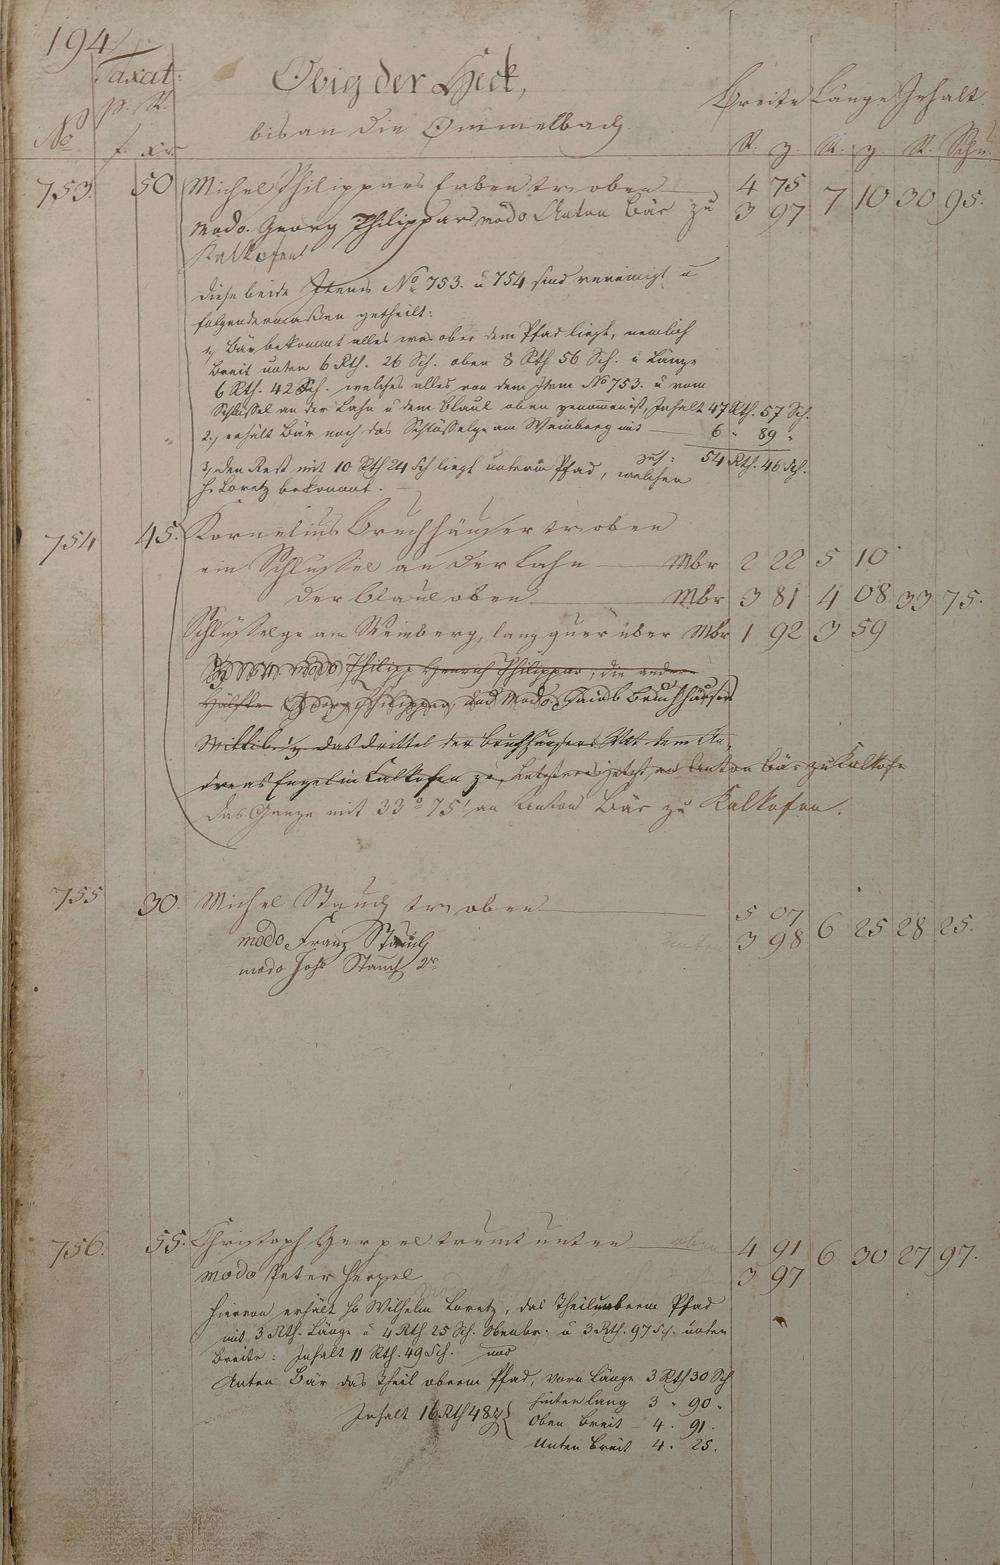 194
Taxat:
Obig der Heck,
bis an die Ommelbach
Breite Länge Inhalt
No p. R. f. xr. R. z. R. z. R. Schu.
753. 50 Michel Philippars Erben tr. oben 4 75 7 10 30 95.
modo. Georg Philippar modo Anton Bär zu 3 97
Kalkofen
diese beide Items No 753. u 754 sind vereinigt u
folgendermaßen getheilt:
1, Bär bekommt alles was ober dem Pfad liegt, nemlich
Breit unten 6 Rth. 26 Sch. oben 8 Rth 56 Sch. u Länge
6 Rth. 42 Sch. welches alles von dem Item No 753. u vom
Schlüssel an der Lahn u dem Blaul oben genommen ist, Inhalt 47 Rth. 57 Sch.
2., erhält Bär noch das Schlüsselge am Weinberg mit 6 " 89 "
zus: 54 Rth. 46 Sch.
3, den Rest mit 10 Rth 24 Sch liegt unterm Pfad, welchen
H. Loretz bekommt.
754 45. Kornelius Bruchhäuser tr. oben
ein Schlüssel an der Lahn Mbr 2 22 5 10
der Blaul oben Mbr 3 81 4 08 33 75.
Schlüsselge am Weinberg, lang quer über Mbr 1 92 3 59
modo Philipp Henrich Philippar, die andere
Hälfte Georg Philippar, und modo Jacob Bruchhäuser
das Drittel der Bruchhäusers dem An,
dreas Engel in Kalkofen zu, Letzteres jetzt an Anton Bär zu Kalkofe
das Ganze mit 33° 75' an Anton Bär zu Kalkofen.
755 30. Michel Stauch tr. oben 5 07 6 25 28 25.
modo Franz Stauch 3 98
modo Johs Stauch 2r
756. 55. Christoph Herpel trennt unten oben 4 91 6 30 27 97.
modo Peter Herpel 3 97
Hiervon erhält H. Wilhelm Loretz, das Theil unterm Pfad
mit 3 Rth. Länge u 4 Rth 25 Sch. Obenbr. u 3 Rth. 97 Sch. unten
Breite: Inhalt 11 Rth. 49 Sch. und
Anton Bär das Theil oberm Pfad, vorn Länge 3 Rth 30 Sch
hinten lang 3 " 90 "
Inhalt 16 Rth 48 Oben Breit 4. 91.
Unten Breit 4. 25.